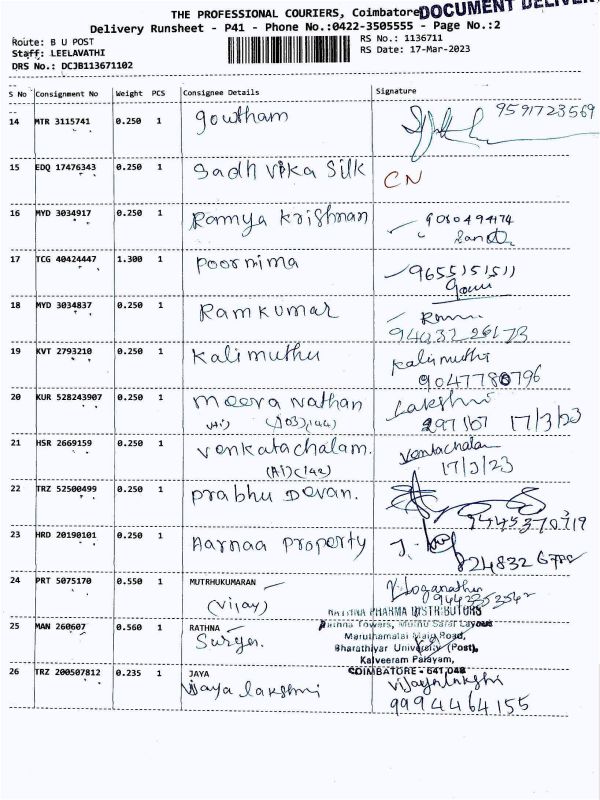 THE PROFESSIONAL COURIERS, Coimbatore
DOCUMENT DELIVERY
Delivery Runsheet - P41 - Phone No.:0422-3505555 - Page No.:2
Route: B U POST
Staff: LEELAVATHI
DRS No.: DCJB113671102
RS No.: 1136711
RS Date: 17-Mar-2023
S No Consignment No Weight PCS Consignee Details Signature
14 MTR 3115741 0.250 1 Gowtham 9591723569
15 EDQ 17476343 0.250 1 Sadhvika Silk CN
16 MYD 3034917 0.250 1 Ramya Krishnan
17 TCG 40424447 1.300 1 Poornima 9655151511
Gowri
18 MYD 3034837 0.250 1 Ramkumar
9403226173
19 KVT 2793210 0.250 1 Kalimuthu Kalimuthu
9047780796
20 KUR 528243907 0.250 1 Meeva Nathan Lakshmi
17/3/23
21 HSR 2669159 0.250 1 Venkatachalam.
(Ai)(142) 17/3/23
22 TRZ 52500499 0.250 1 Prabhu Devan.
9445370719
23 HRD 20190101 0.250 1 Aarnaa Property
24 PRT 5075170 0.550 1 MUTRHUKUMARAN
(Vijay) V Loganathan
RATHNA PHARMA DISTRIBUTORS
25 MAN 260607 0.560 1 RATHNA
Rathna Towers, Muthu Saral Layout
Surya.
Maruthamalai Main Road,
Bharathiyar University (Post),
Kalveeram Palayam,
COIMBATORE - 641,046
26 TRZ 200507812 0.235 1 JAYA
Vijaya lakshmi Vijayalakshmi
9994464155